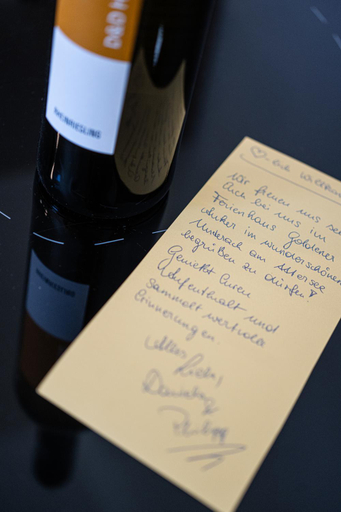 D&D
RHEINRIESLING
Herzlich Willkommen
Wir freuen uns sehr
Auch bei uns im
Ferienhaus Goldener
Winter im wunderschönen
Unterach am Attersee
begrüßen zu dürfen
Genießt Euren
Aufenthalt und
sammelt wertvolle
Erinnerungen.
Alles Liebe,
Philipp